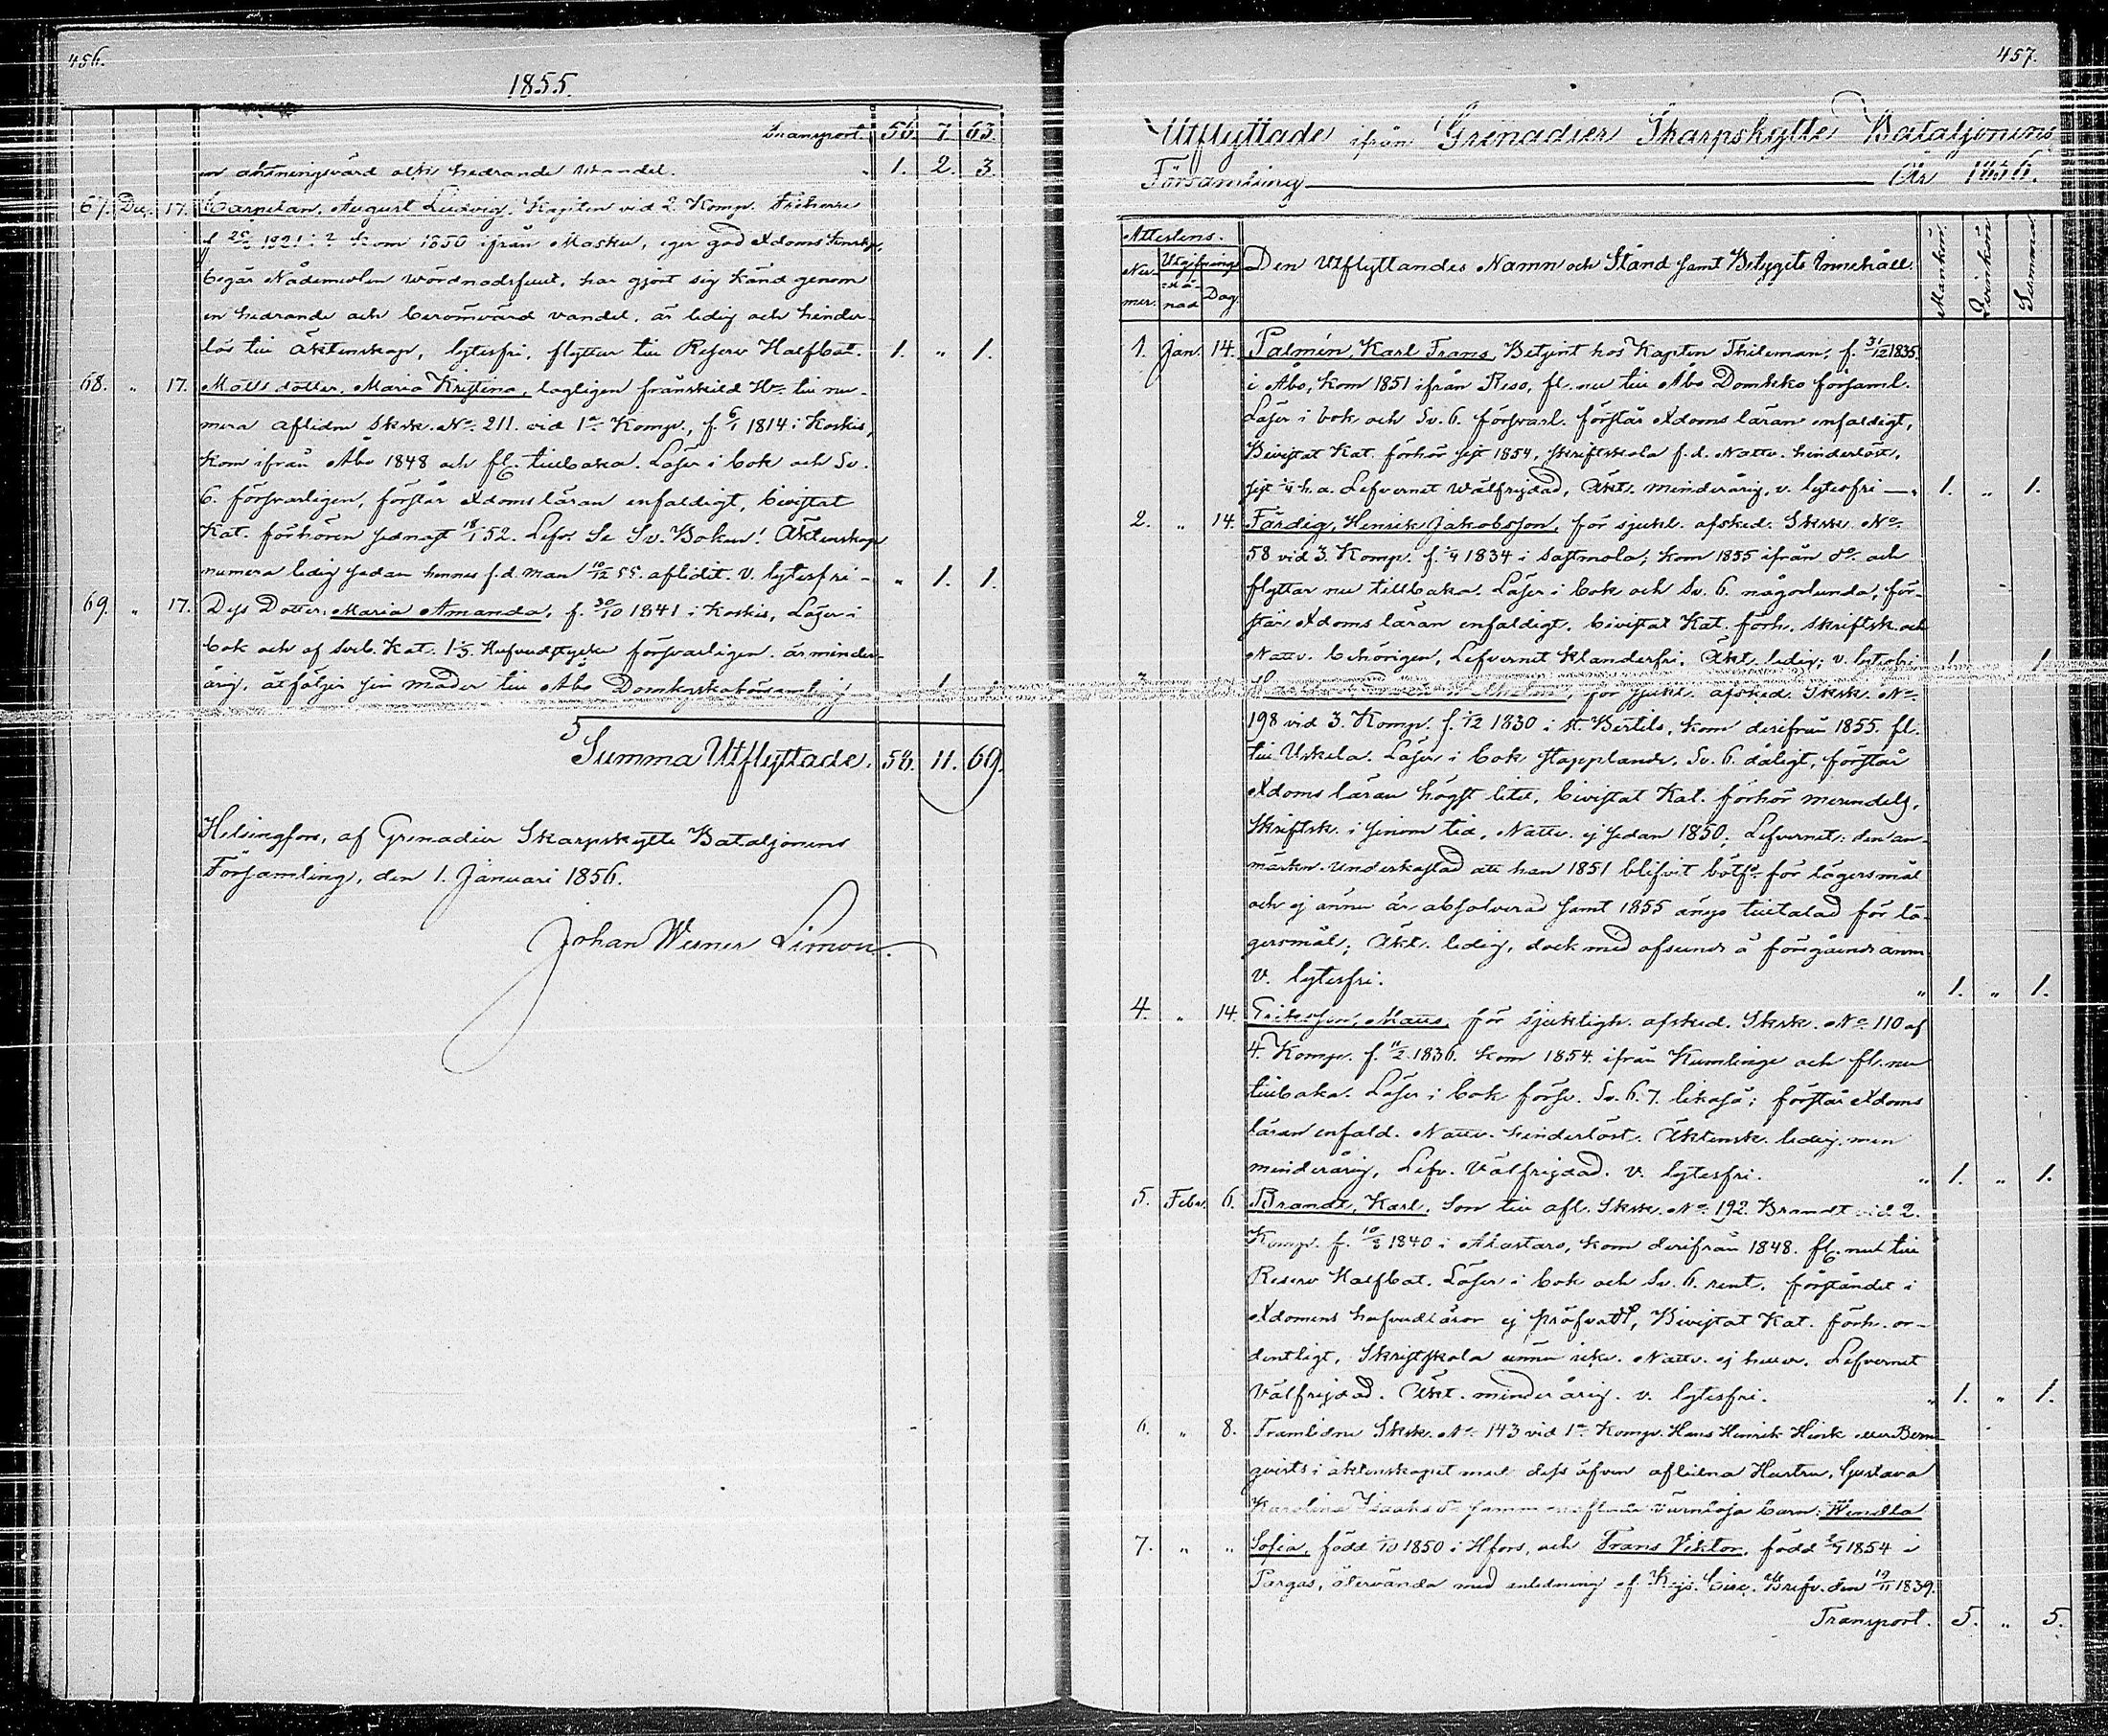 456.
1855.
Transport. 56. 7. 63.
en aktningsvärd och hedrande vandel. 1. 2. 3.
67. Dec. 17. Carpelan, August Ludvig, Kapiten vid 2. Komp. Friherre
1821 i ? kom 1850 ifrån Masku, eger god Xdoms kunskap,
begår Nådemedlen wördnadsfullt, har gjort sig känd genom
en hedrande och berömvärd vandel. är ledig och hinder-
lös till äktenskap, lytesfri, flyttar till Reserv Halfbat. 1. " 1.
68. " 17. Matts dotter, Maria Kristina, lagligen frånskild Hu till nu-
mera aflidne Skrsk. No 211. vid 1a Komp., f. 6/1 1814 i Koskis,
kom ifrån Åbo 1848 och fl. tillbaka. Läser i bok och Sv.
6. försvarligen, förstår Xdomsläran enfaldigt, bivistat
Kat. förhören sednast 18/1 52. Lefv. Se Sv. Boken! Äktenskap
numera ledig sedan hennes f.d. man 10/12 55. aflidit. V. lytesfri - " 1. 1.
69. " 17. Dess Dotter, Maria Amanda, f. 30/10 1841 i Koskis, Läser i
bok och af Sveb. Kat. 1-5. Hufvudstycke försvarligen. är minder-
årig, åtföljer sin moder till Åbo Domkyrkoförsamling
Summa Utflyttade. 58. 11. 69.
Helsingfors, af Grenadier Skarpskytte Bataljonens
Församling, den 1. Januari 1856.
Johan Werner Limon
457.
Utflyttade ifrån Grenadier Skarpskytte Bataljonens
Församling År 1856.
Attestens.
Nu-mer. Utgifnings Må-nad Dag. Den Utflyttandes Namn och Stånd samt Betygets Innehåll. Mankön. Qvinkön. Summa.
1. Jan. 14. Palmén, Karl Frans, Betjent hos Kapten Thileman, f. 31/12 1835.
i Åbo, kom 1851 ifrån Reso, fl. nu till Åbo Domkko församl.
Läser i bok och Sv. 6. försvarl. förstår Xdoms läran enfaldigt,
Bivistat Kat. förhör sist 1854, skriftskola f.d. Nattv. hinderlöst,
sist h.a. Lefvernet Wälfrejdad, Äkt. minderårig, v. lytesfri — 1. " 1.
2. " 14 Färdig, Henrik Jakobsson, för sjukl. afsked. Skrsk. No
58 vid 3. Komp. f. 1834 i Sastmola, kom 1855 ifrån do och
flyttar nu tillbaka. Läser i bok och Sv. 6. någorlunda, för-
står Xdoms läran enfaldigt, bivistat Kat. förh. skriftsk. och
Nattv. behörigen, Lefvernet klanderfri. Äkt. ledig; v. lytesfri 1. 1.
för sjukl. afsked. Skrsk. No
198 vid 3. Komp. f. 1/12 1830 i St. Bertils, kom derifrån 1855. fl.
till Uskela. Läser i bok stapplande, Sv. 6. dåligt, förstår
Xdoms läran högst litet, bivistat Kat. förhör merendels,
Skriftsk. i sinom tid, Nattv. ej sedan 1850; Lefvernet: den an-
märkn. underkastad att han 1851 blifvit bötfd för lägersmål
och ej ännu är absolverad samt 1855 ånyo tilltalad för lä-
gersmål; Äkt. ledig, dock med afseende å föregående anm.
V. lytesfri. " 1. " 1.
4. " 14. Eriksson, Matts, för sjukligh. afsked. Skrsk. No 110 af
4. Komp. f. 11/2 1836. kom 1854. ifrån Kumlinge och fl. nu
tillbaka. Läser i bok försv. Sv. 6. 7. likaså; förstår Xdoms
läran enfald. Nattv. hinderlöst. Äktensk. ledig, men
minderårig, Lefv. Välfrejdad. v. lytesfri. " 1. " 1.
5. Febr. 6. Brandt, Karl, Son till afl. Skrsk. No 192 Brandt vid 2.
Komp. f. 10/3 1840 i Alastaro, kom derifrån 1848. fl. nu till
Reserv Halfbat. Läser i bok och Sv. 6. rent, förståndet i
Xdomens hufvudläror ej pröfvadt, Bivistat Kat. förh. or-
dentligt, Skriftskola ännu icke. Nattv. ej heller. Lefvernet
Välfrejdad. Äkt. minderårig. v. lytesfri. " 1. " 1.
6. " 8. Framlidne Skrsk. No 143 vid 1a Komp. Hans Henrik Hirsk eller Berm-
qvists i äktenskapet med dess äfven aflidna Hustru, Gustava
Karolina Isaks dr sammanaflade värnlösa barn: Wendla
7. " " Sofia, född 1/10 1850 i Hfors, och Frans Viktor, född 1854 i
Pargas, återvända med anledning af Kejs. Circ. Brefv. den 19/11 1839.
Transport. 5. " 5.